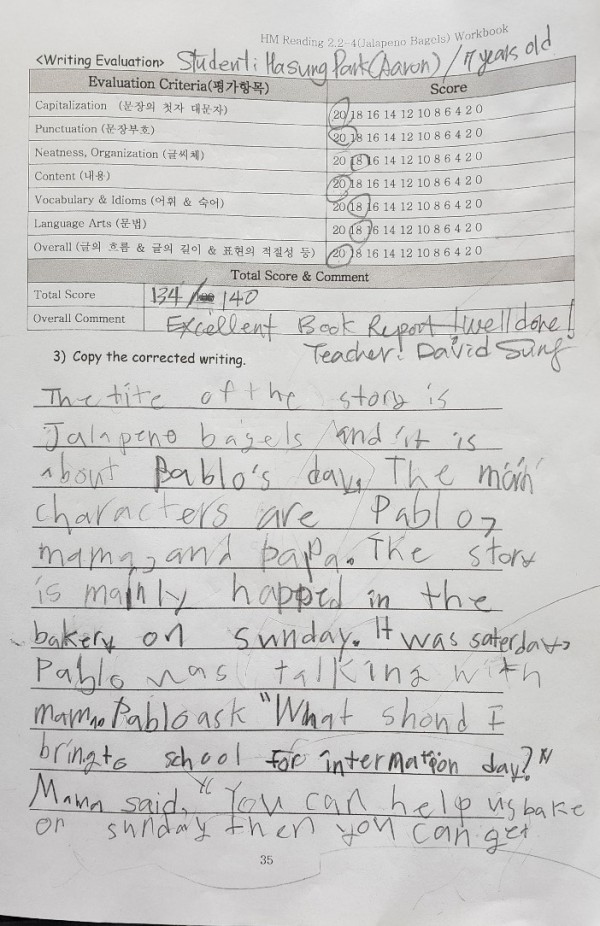 HM Reading 2.2-4(Jalapeno Bagels) Workbook
<Writing Evaluation> Student: Hasung Park(Aaron) / 7 years old
Evaluation Criteria(평가항목) Score
Capitalization (문장의 첫자 대문자) 20 18 16 14 12 10 8 6 4 2 0
Punctuation (문장부호) 20 18 16 14 12 10 8 6 4 2 0
Neatness, Organization (글씨체) 20 18 16 14 12 10 8 6 4 2 0
Content (내용) 20 18 16 14 12 10 8 6 4 2 0
Vocabulary & Idioms (어휘 & 숙어) 20 18 16 14 12 10 8 6 4 2 0
Language Arts (문법) 20 18 16 14 12 10 8 6 4 2 0
Overall (글의 흐름 & 글의 길이 & 표현의 적절성 등) 20 18 16 14 12 10 8 6 4 2 0
Total Score & Comment
Total Score 134 / 140
Overall Comment Excellent Book Report! well done!
3) Copy the corrected writing. Teacher: David Sung
The tite of the story is
Jalapeno bagels and it is
about Pablo's day. The main
characters are Pablo,
mama, and papa. The story
is mainly happed in the
bakery on sunday. It was saterday,
Pablo was talking with
mama. Pablo ask "What shond I
bring to school for intermation day?"
Mama said, "You can help us bake
on sunday then you can get
35